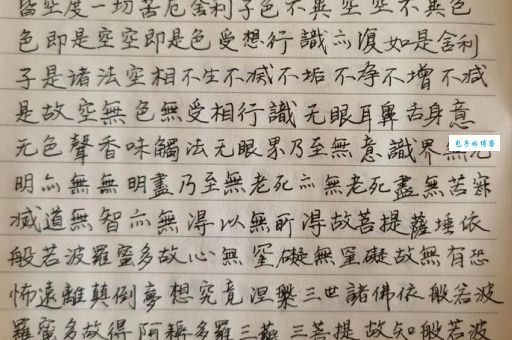 皆空度一切苦厄舍利子色不異空空不異色
色即是空空即是色受想行識亦復如是舍利
子是諸法空相不生不滅不垢不净不增不减
是故空無色無受相行識无眼耳鼻舌身意
无色聲香味觸法无眼界乃至無意識界無无
明亦無無明盡乃至無老死亦無老死盡無苦寂
滅道無智亦無得以無所得故菩提薩埵依
般若波羅蜜多故心無罣礙無罣礙故無有恐
怖遠離顛倒夢想究竟涅槃三世諸佛依般若波
羅蜜多故得阿耨多羅三藐三菩提故知般若波
包子的博客